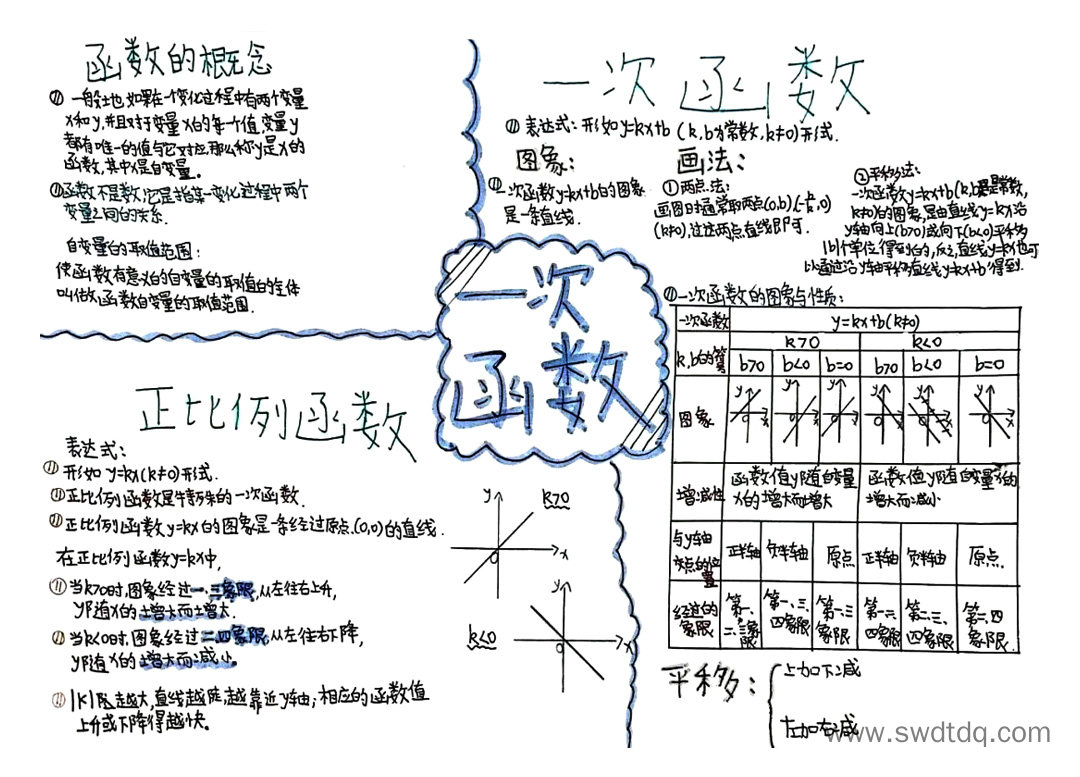 函数的概念
一般地,如果在一个变化过程中有两个变量
x和y,并且对于变量x的每一个值,变量y
都有唯一的值与它对应,那么称y是x的
函数,其中x是自变量。
函数不是数,它是指某一变化过程中两个
变量之间的关系.
自变量的取值范围:
使函数有意义的自变量的取值的全体
叫做函数自变量的取值范围.
一次函数
表达式:形如y=kx+b (k,b为常数,k≠0)形式.
图象:
一次函数y=kx+b的图象
是一条直线.
画法:
①两点法:
画图时通常取两点(0,b),(-b/k,0)
(k≠0),过这两点画直线即可.
②平移法:
一次函数y=kx+b(k,b是常数,
k≠0)的图象,是由直线y=kx沿
y轴向上(b>0)或向下(b<0)平移
|b|个单位得到的,反之,直线y=kx也可
以通过沿y轴平移直线y=kx+b得到.
一次函数
正比例函数
表达式:
形如y=kx(k≠0)形式.
正比例函数是特殊的一次函数.
正比例函数y=kx的图象是一条经过原点(0,0)的直线.
在正比例函数y=kx中,
当k>0时,图象经过一、三象限,从左往右上升,
y随x的增大而增大.
当k<0时,图象经过二、四象限,从左往右下降,
y随x的增大而减小。
|k|越大,直线越陡,越靠近y轴;相应的函数值
上升或下降得越快。
y k>0
0 x
y
k<0 0 x
一次函数的图象与性质:
一次函数 y=kx+b(k≠0)
k>0 k<0
k,b的 b>0 b<0 b=0 b>0 b<0 b=0
图象
增减性 函数值y随自变量 函数值y随自变量x的
x的增大而增大 增大而减小
与y轴
交点的位置 正半轴 负半轴 原点 正半轴 负半轴 原点.
经过的
象限 第一、二、三象限 第一、三、四象限 第一、三象限 第一、二、四象限 第二、三、四象限 第二、四象限
平移:
上加下减
左加右减
www.swdtdq.com